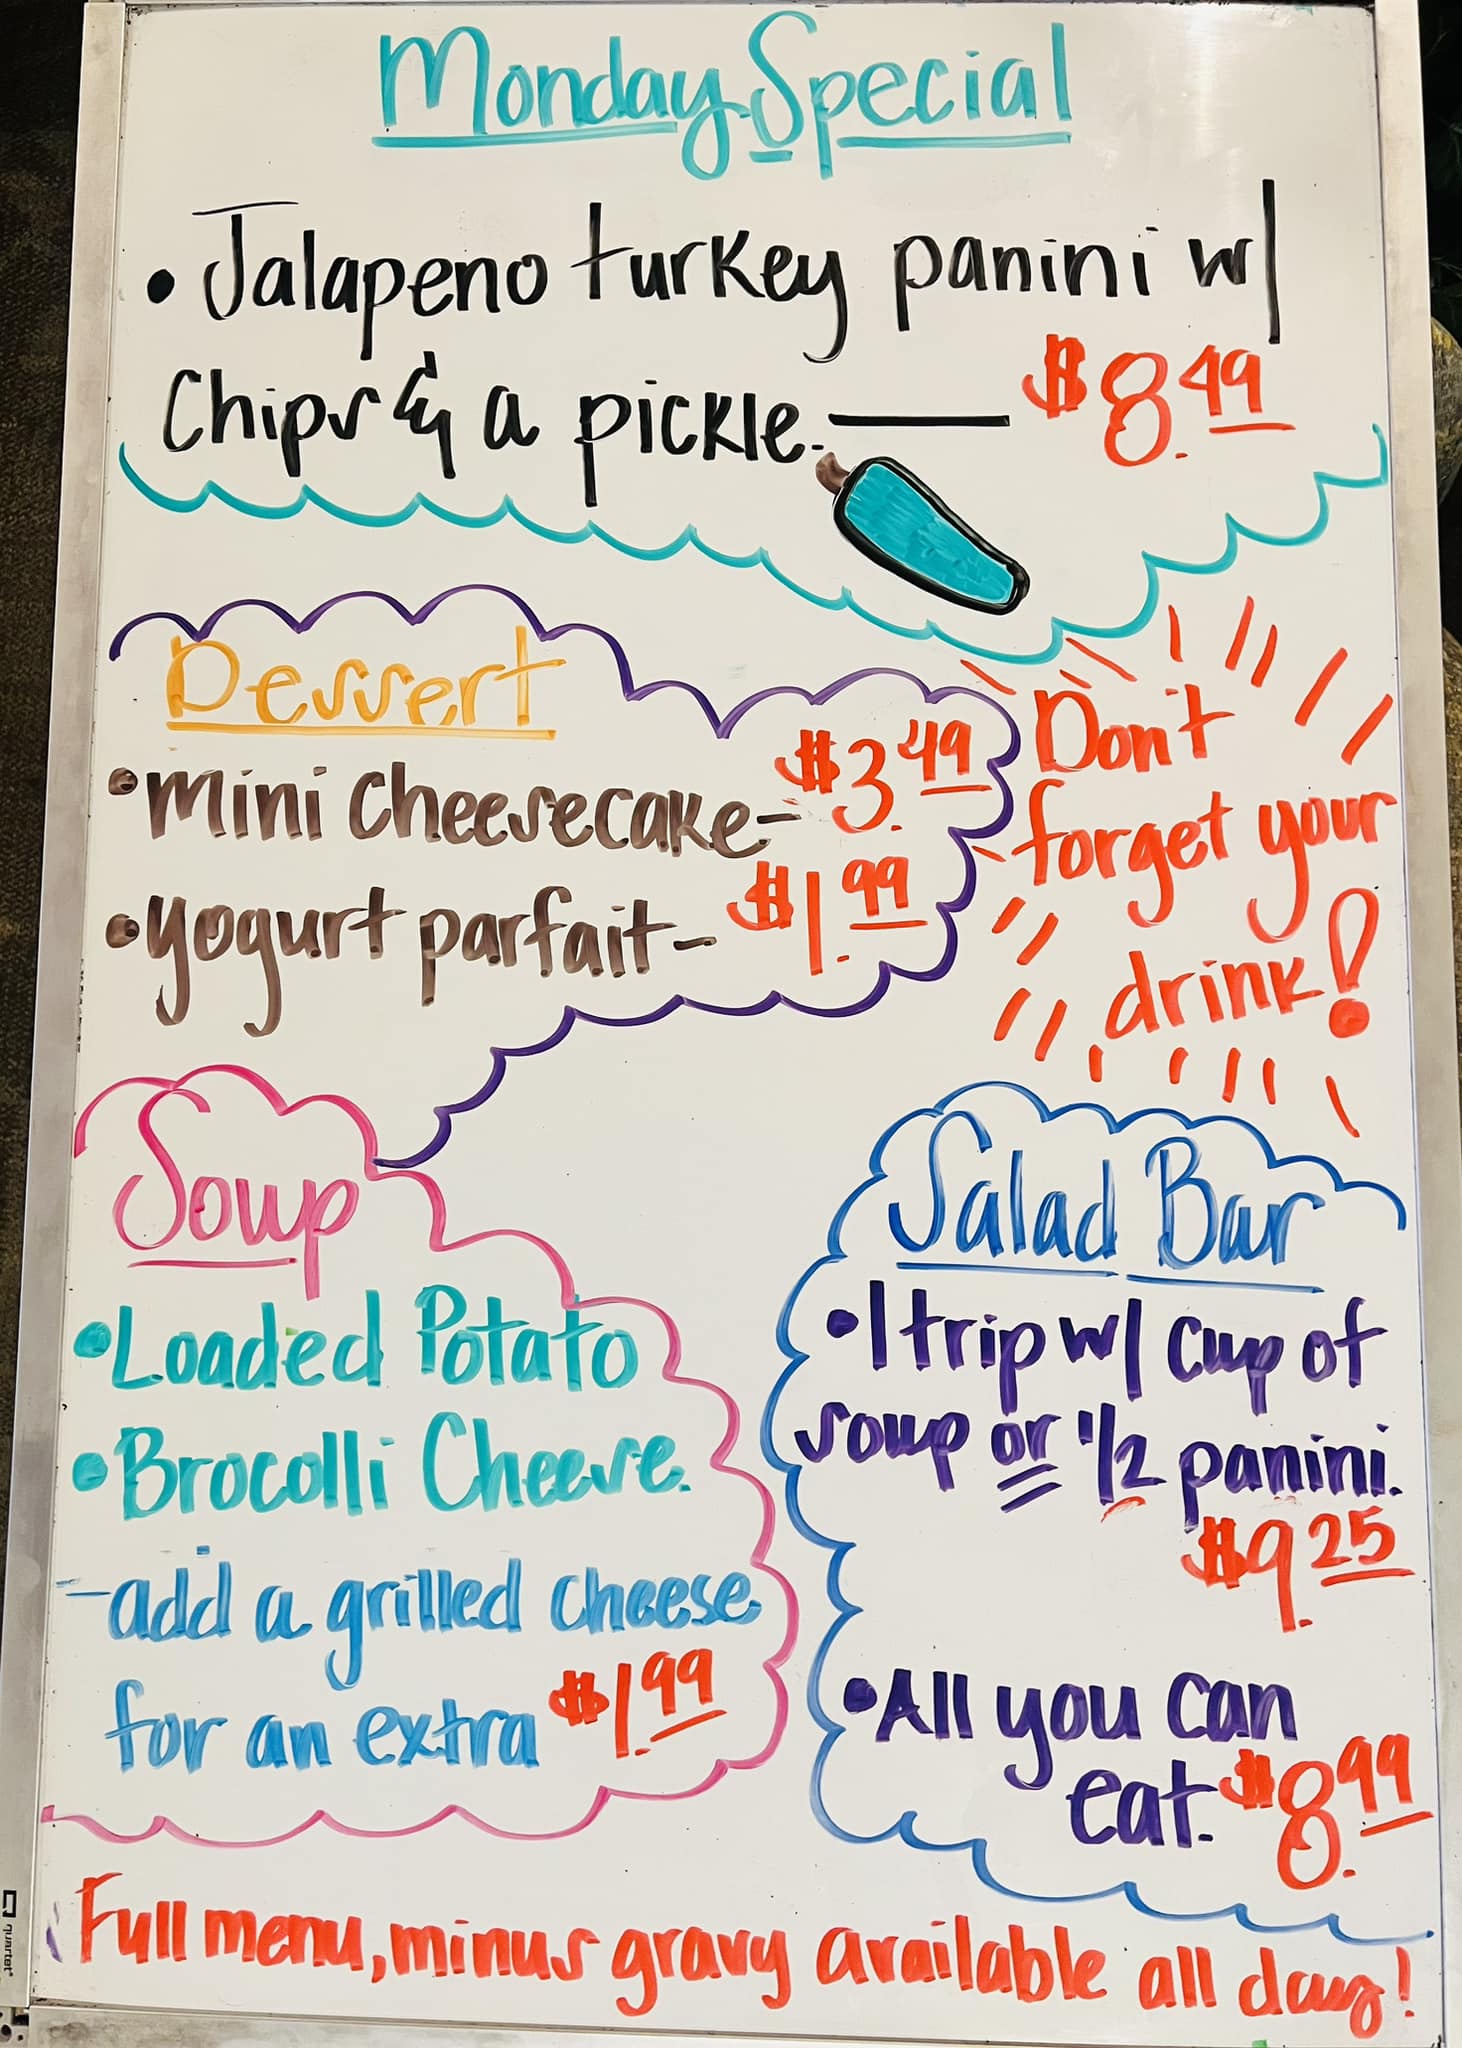 Monday Special
• Jalapeno turkey panini w/
Chips & a pickle. — $8.49
Dessert
• mini cheesecake - $3.49
• yogurt parfait - $1.99
Don't
forget your
drink!
Soup
• Loaded Potato
• Brocolli Cheese.
- add a grilled cheese
for an extra $1.99
Salad Bar
• 1 trip w/ cup of
soup or 1/2 panini.
$9.25
• All you can
eat. $8.99
Full menu, minus gravy available all day!
quartet